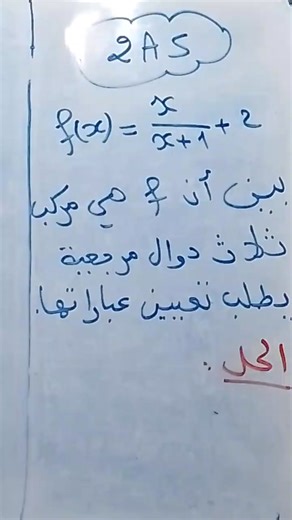 2AS
f(x) = x/(x+1) + 2
بين أن f هي مركب
ثلاث دوال مرجعية
يطلب تعيين عباراتها.
الحل: